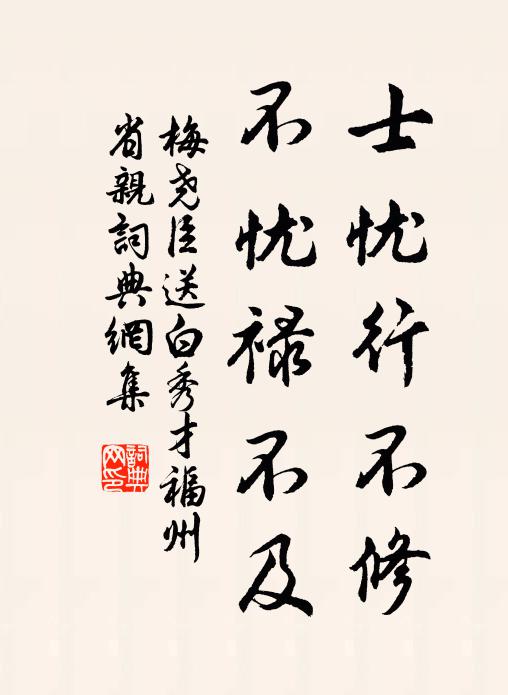 士忧行不修
不忧禄不及
梅尧臣送白秀才福州
省親詞典網集
詞典
网印